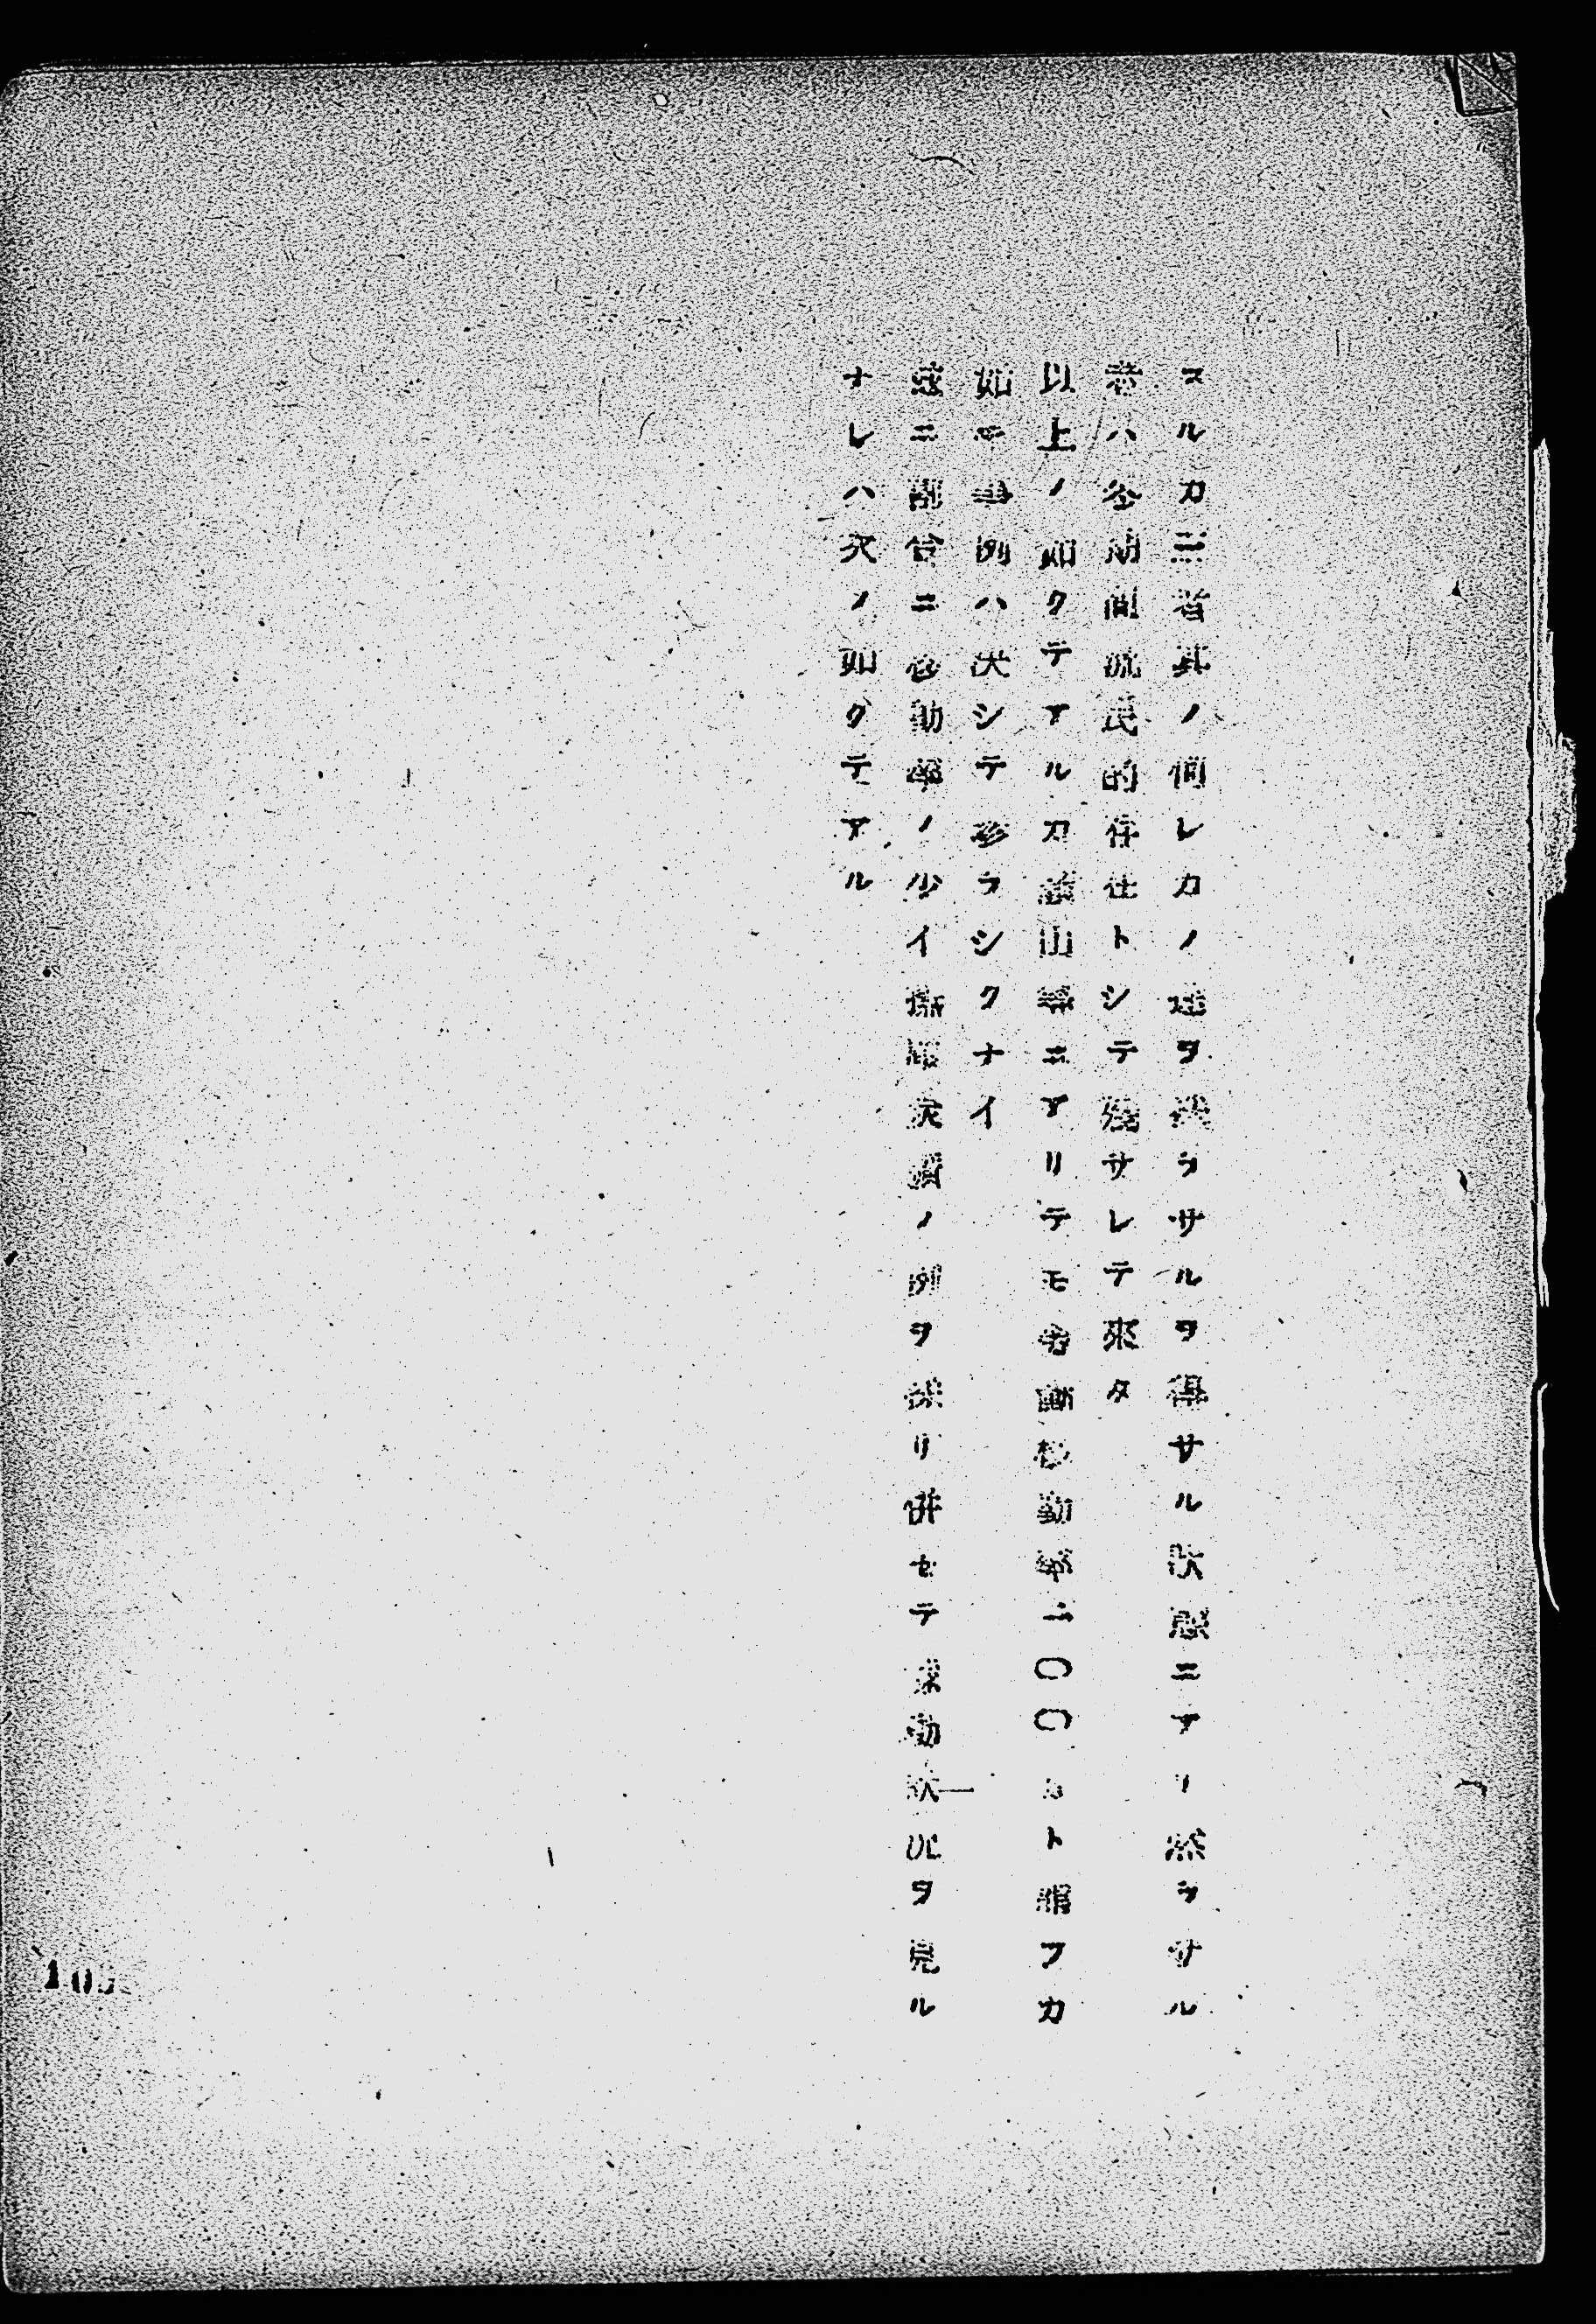 ユルカ三者其ノ何レカノ途ヲ ラサルヲ得サル状態ニアリ然ラサル
者ハ全 流民的存在トシテ残サレテ來タ
以上ノ如クテアルカ 山 ニアリテモ労働移動率一〇〇%ト謂フカ
如キ事例ハ決シテ珍ラシクナイ
ニ ニ移動率ノ少イ撫順炭礦ノ例ヲ採リ併セテ移動状況ヲ見ル
ナレハ次ノ如クテアル